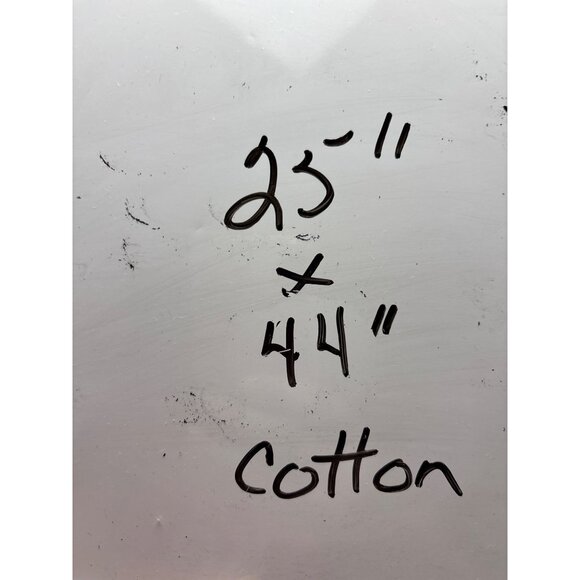 25"
x
44"
cotton